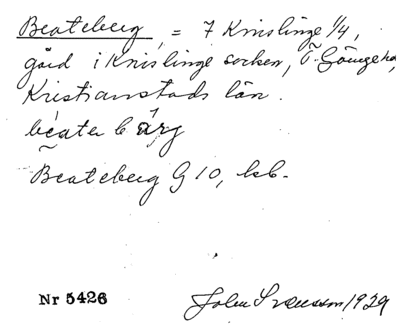 Beateberg, = 7 Knislinge 1/4,
gård i Knislinge socken, Ö. Göinge hd,
Kristianstads län.
beateb ärg
Beateberg G 10, kb.
Nr 5426 John Svensson 1929